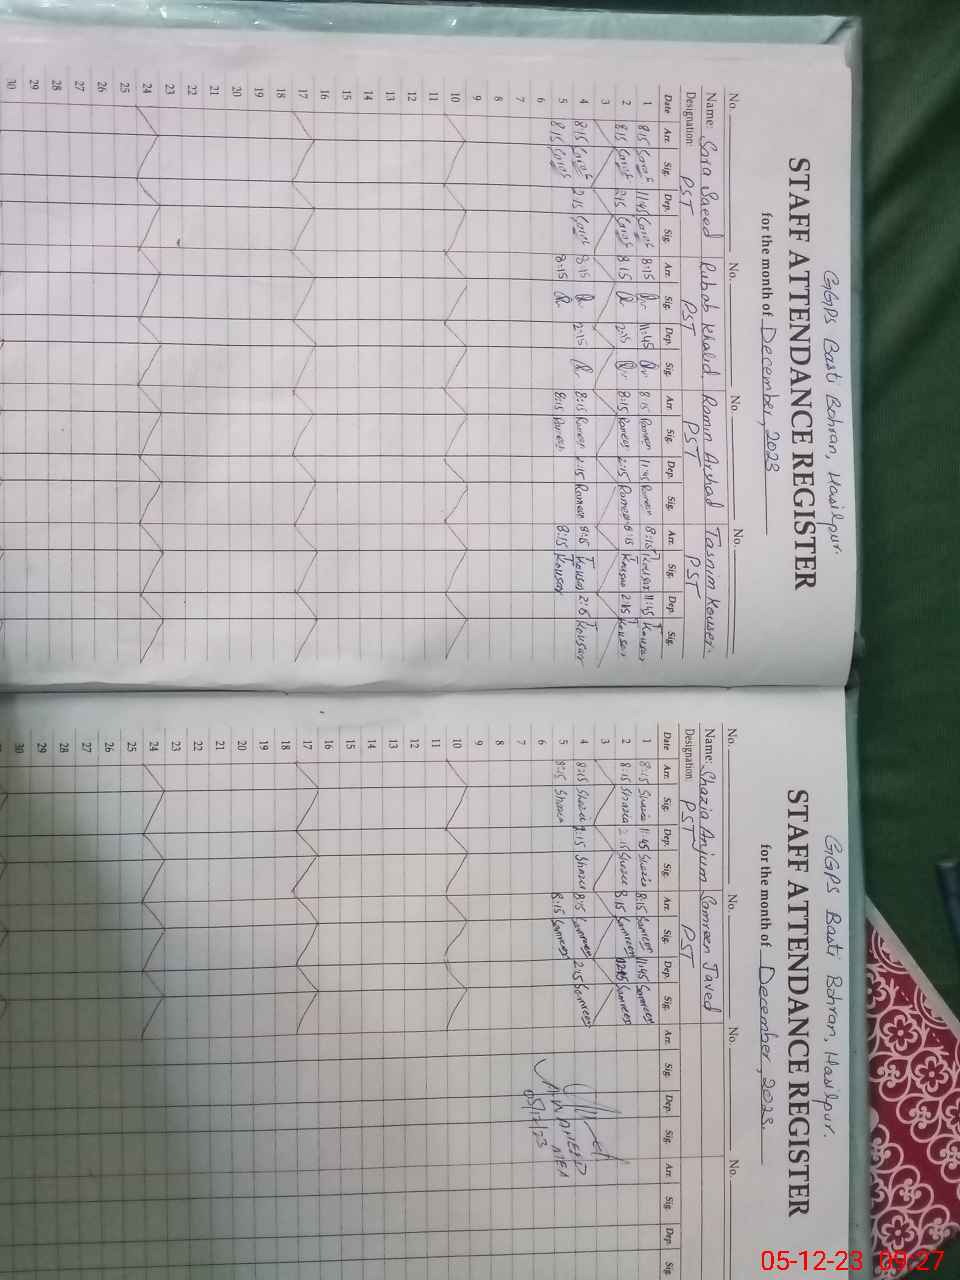 GGPS Basti Bohran, Hasilpur.
STAFF ATTENDANCE REGISTER
for the month of December, 2023
No. No. No. No.
Name: Sara Saeed Rubab Khalid. Ramin Arshad Tasnim Kouser.
Designation: PST PST PST PST
Date Arr. Sig. Dep. Sig. Arr. Sig. Dep. Sig. Arr. Sig. Dep. Sig. Arr. Sig. Dep. Sig.
1 8:15 11:45 8:15 11:45 8:15 Rameen 11:45 Rameen 8:15 Kousar 11:45 Kousar
2 8:15 2:15 8:15 2:15 8:15 Rameen 2:15 Rameen 8:15 Kousar 2:15 Kousar
3
4 8:15 2:15 8:15 2:15 8:15 Rameen 2:15 Rameen 8:15 Kousar 2:15 Kousar
5 8:15 8:15 8:15 Rameen 8:15 Kousar
6
7
8
9
10
11
12
13
14
15
16
17
18
19
20
21
22
23
24
25
26
27
28
29
30
GGPS Basti Bohran, Hasilpur.
STAFF ATTENDANCE REGISTER
for the month of December, 2023.
No. No. No. No.
Name: Shazia Anjum Samreen Javed
Designation: PST PST
Date Arr. Sig. Dep. Sig. Arr. Sig. Dep. Sig. Arr. Sig. Dep. Sig. Arr. Sig. Dep. Sig.
1 8:15 Shazia 11:45 Shazia 8:15 Samreen 11:45 Samreen
2 8:15 Shazia 2:15 Shazia 8:15 Samreen Samreen
3
4 8:15 Shazia 2:15 Shazia 8:15 Samreen 2:15 Samreen
5 8:15 Shazia 8:15 Samreen
6
7
8
9
10
11
12
13
14
15
16
17
18
19
20
21
22
23
24
25
26
27
28
29
30
MEA
05/12/23
05-12-23 09:27